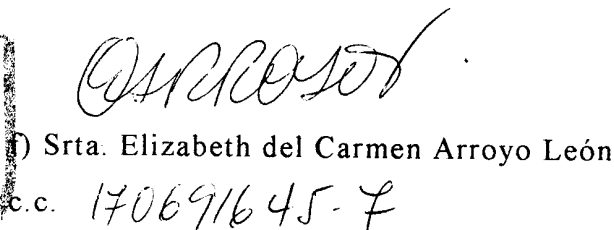 f) Srta. Elizabeth del Carmen Arroyo León
c.c. 170691645-7